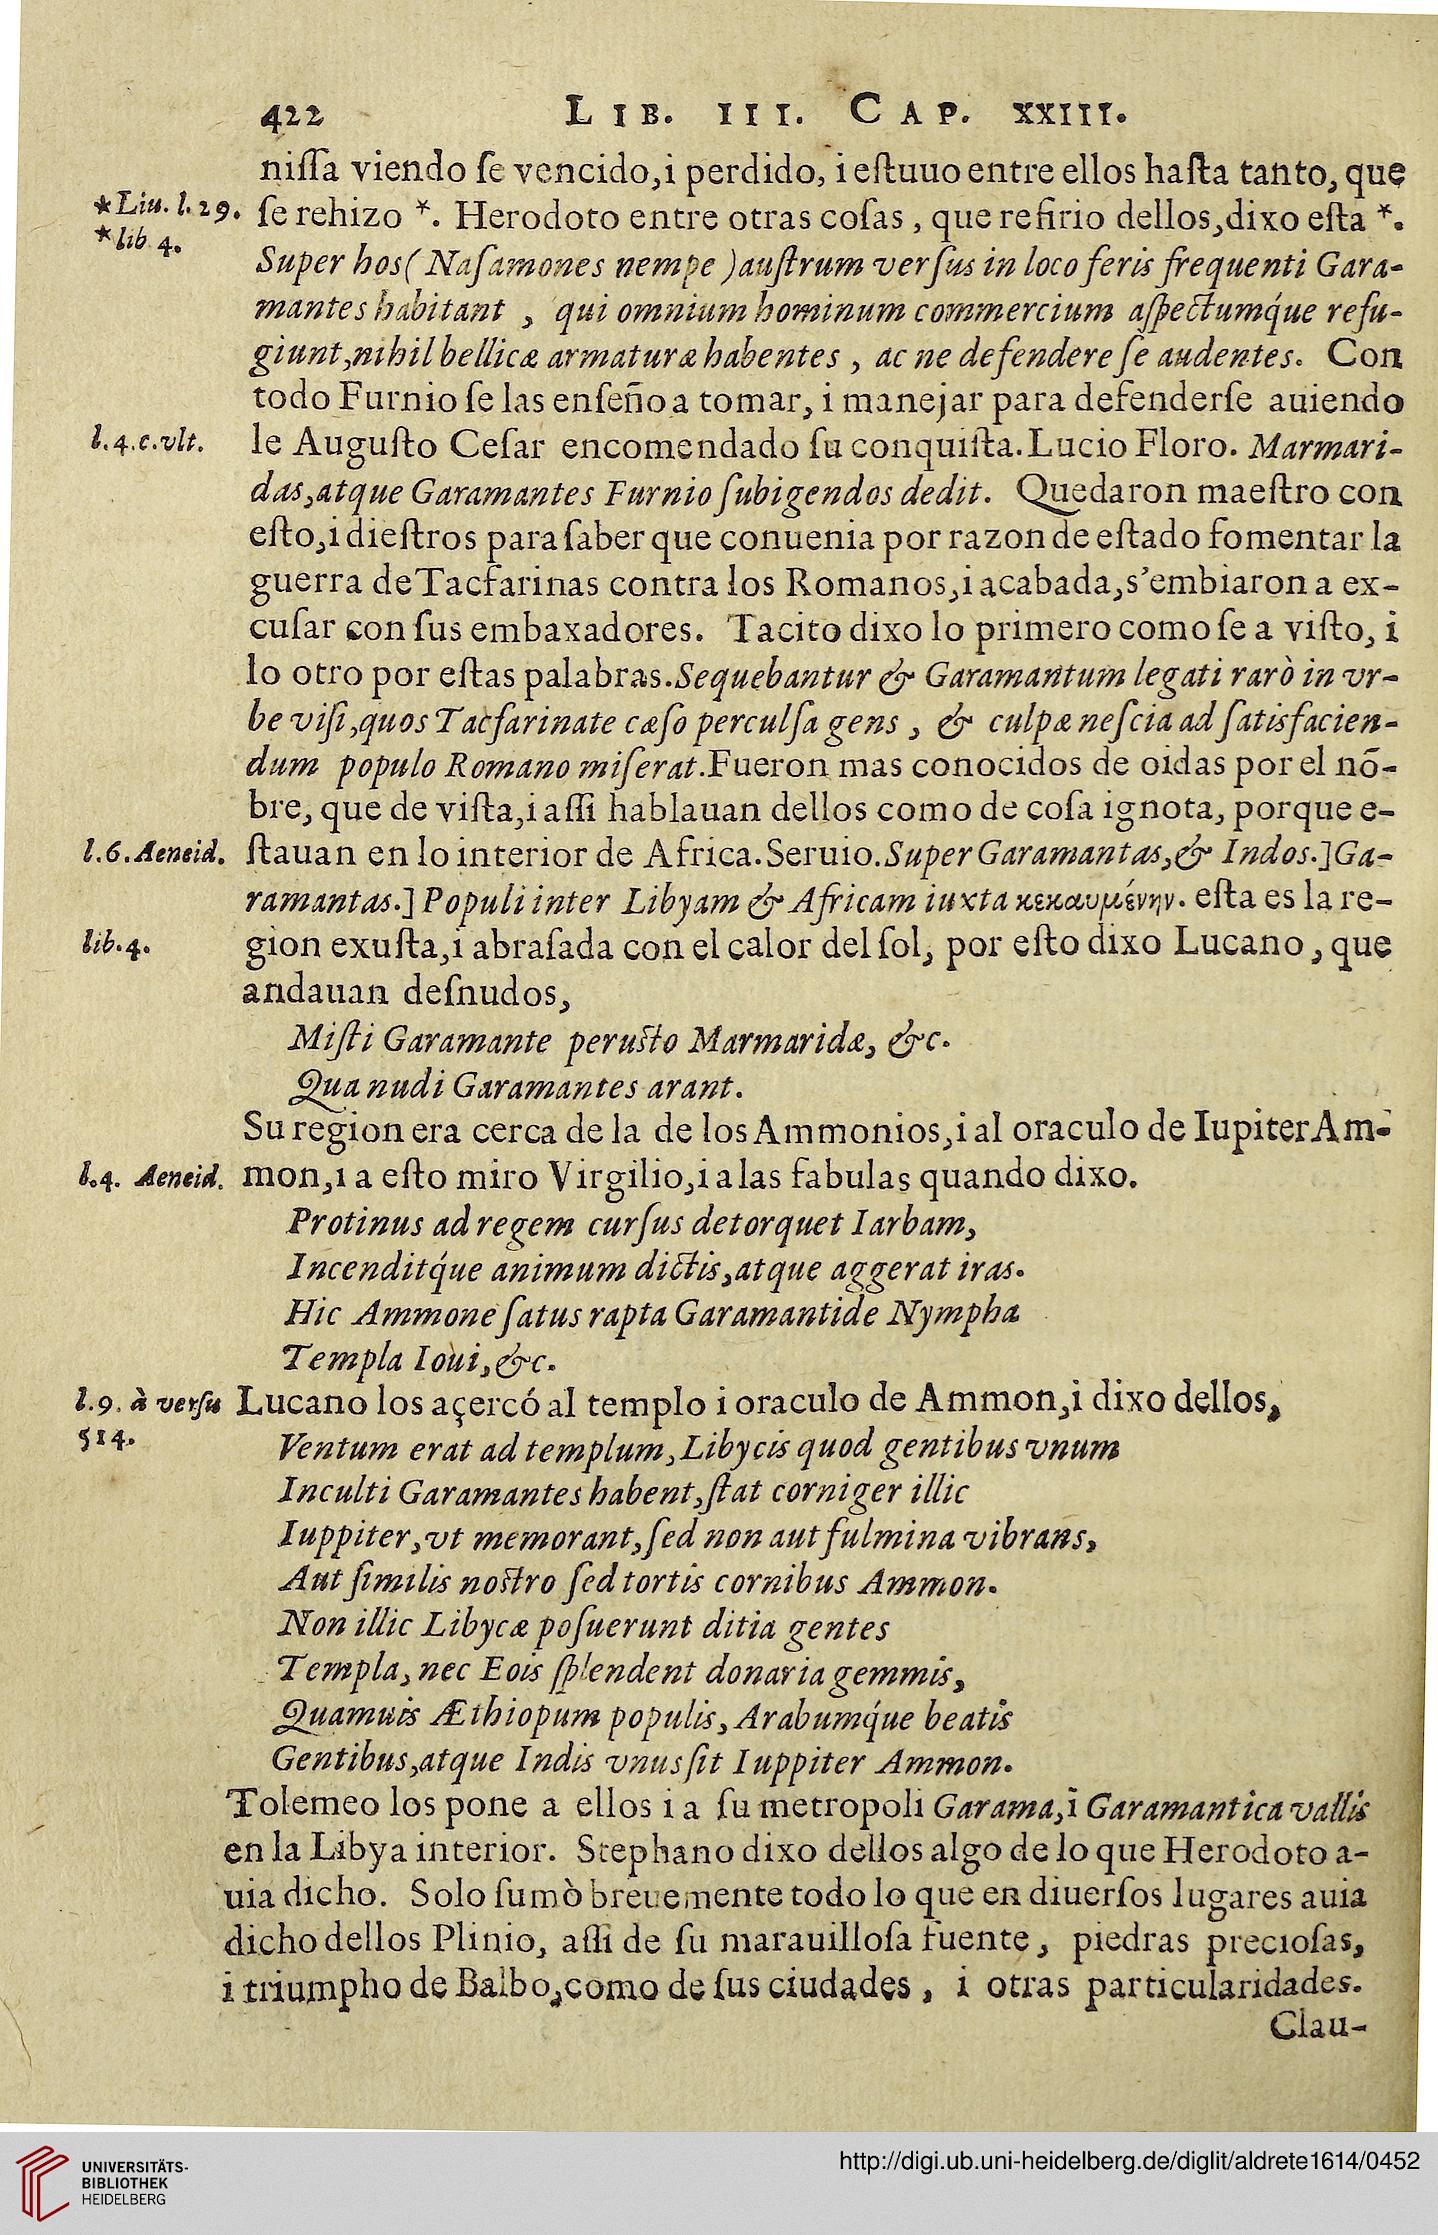 422 LIB. III. CAP. XXIII.
niſſa viendo ſe vencido,i perdido, i eſtuuo entre ellos haſta tanto, que
*Liu. l. 29. ſe rehizo *. Herodoto entre otras coſas , que refirio dellos,dixo eſta *.
*lib 4.
Super hos( Naſamones nempe )auſtrum verſus in loco feris frequenti Gara-
mantes habitant , qui omnium hominum commercium aſpectumq́ue refu-
giunt,nihil bellicæ armaturæ habentes , ac ne defendere ſe audentes. Con
todo Furnio ſe las enſeño a tomar, i manejar para defenderſe auiendo
l.4.c.vlt. le Auguſto Ceſar encomendado ſu conquiſta. Lucio Floro. Marmari-
das,atque Garamantes Furnio ſubigendos dedit. Quedaron maeſtro con
eſto,i dieſtros para ſaber que conuenia por razon de eſtado fomentar la
guerra de Tacfarinas contra los Romanos,i acabada,s'embiaron a ex-
cuſar con ſus embaxadores. Tacito dixo lo primero como ſe a viſto, i
lo otro por eſtas palabras.Sequebantur & Garamantum legati rarò in vr-
be viſi,quos Tacfarinate cæſo perculſa gens , & culpæ neſcia ad ſatisfacien-
dum populo Romano miſerat.Fueron mas conocidos de oidas por el nō-
bre, que de viſta,i aſſi hablauan dellos como de coſa ignota, porque e-
l.6.Aeneid. ſtauan en lo interior de Africa.Seruio.Super Garamantas,& Indos.]Ga-
ramantas.] Populi inter Libyam & Africam iuxta κεκαυμένην. eſta es la re-
lib.4. gion exuſta,i abraſada con el calor del ſol, por eſto dixo Lucano , que
andauan deſnudos,
Miſti Garamante peruſto Marmaridæ, &c.
Qua nudi Garamantes arant.
Su region era cerca de la de los Ammonios,i al oraculo de Iupiter Am-
l.4. Aeneid. mon,i a eſto miro Virgilio,i a las fabulas quando dixo.
Protinus ad regem curſus detorquet Iarbam,
Incenditq́ue animum dictis,atque aggerat iras.
Hic Ammone ſatus rapta Garamantide Nympha
Templa Ioui,&c.
l.9. à verſu Lucano los açercó al templo i oraculo de Ammon,i dixo dellos,
514.
Ventum erat ad templum,Libycis quod gentibus vnum
Inculti Garamantes habent,ſtat corniger illic
Iuppiter,vt memorant,ſed non aut fulmina vibrans,
Aut ſimilis noſtro ſed tortis cornibus Ammon.
Non illic Libycæ poſuerunt ditia gentes
Templa, nec Eois ſplendent donaria gemmis,
Quamuis Æthiopum populis, Arabumq́ue beatis
Gentibus,atque Indis vnus ſit Iuppiter Ammon.
Tolemeo los pone a ellos i a ſu metropoli Garama,i Garamantica vallis
en la Libya interior. Stephano dixo dellos algo de lo que Herodoto a-
uia dicho. Solo ſumò breuemente todo lo que en diuerſos lugares auia
dicho dellos Plinio, aſſi de ſu marauilloſa fuente , piedras precioſas,
i triumpho de Balbo,como de ſus ciudades , i otras particularidades.
Clau-
UNIVERSITÄTS-
BIBLIOTHEK
HEIDELBERG
http://digi.ub.uni-heidelberg.de/diglit/aldrete1614/0452